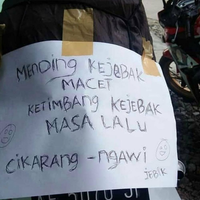 MENDING KEJEBAK
MACET
KETIMBANG KEJEBAK
MASA LALU
CIKARANG - NGAWI
JEBIK